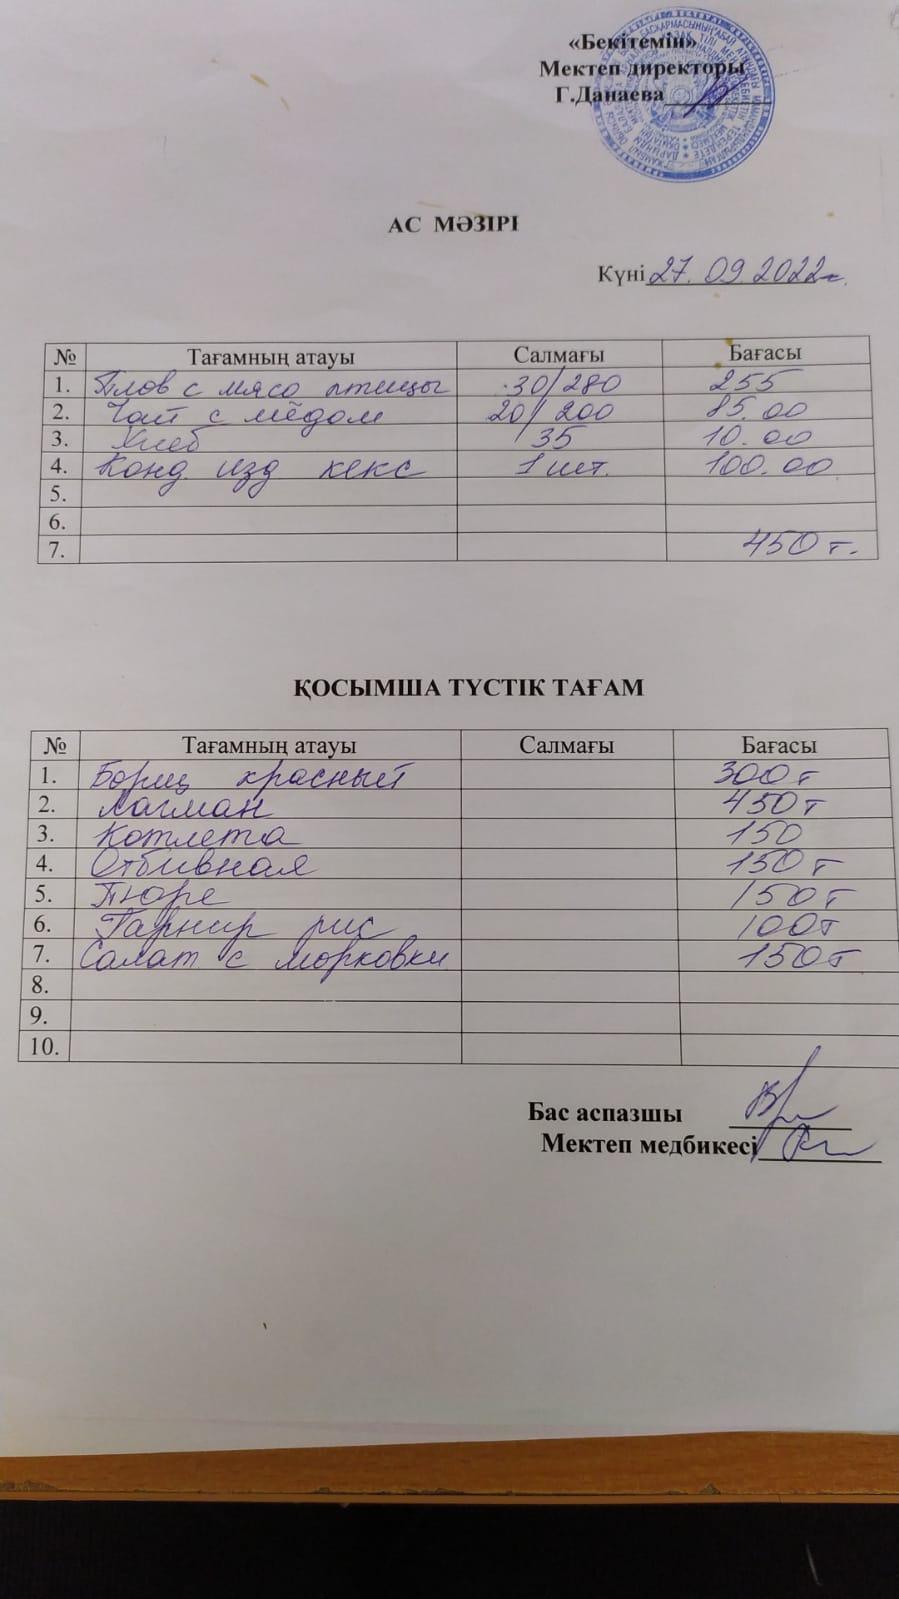 «Бекітемін»
Мектеп директоры
Г.Данаева
АС МӘЗІРІ
Күні 27.09.2022г.
№ Тағамның атауы Салмағы Бағасы
1. Плов с мясо птицы 30/280 255
2. Чай с мёдом 20/200 85.00
3. Хлеб 35 10.00
4. Конд изд кекс 1 шт. 100.00
5.
6.
7. 450 т.
ҚОСЫМША ТҮСТІК ТАҒАМ
№ Тағамның атауы Салмағы Бағасы
1. Борщ красный 300 т
2. Лагман 450 т
3. Котлета 150
4. Отбивная 150 т
5. Пюре 150 т
6. Гарнир рис 100 т
7. Салат с морковки 150 т
8.
9.
10.
Бас аспазшы
Мектеп медбикесі